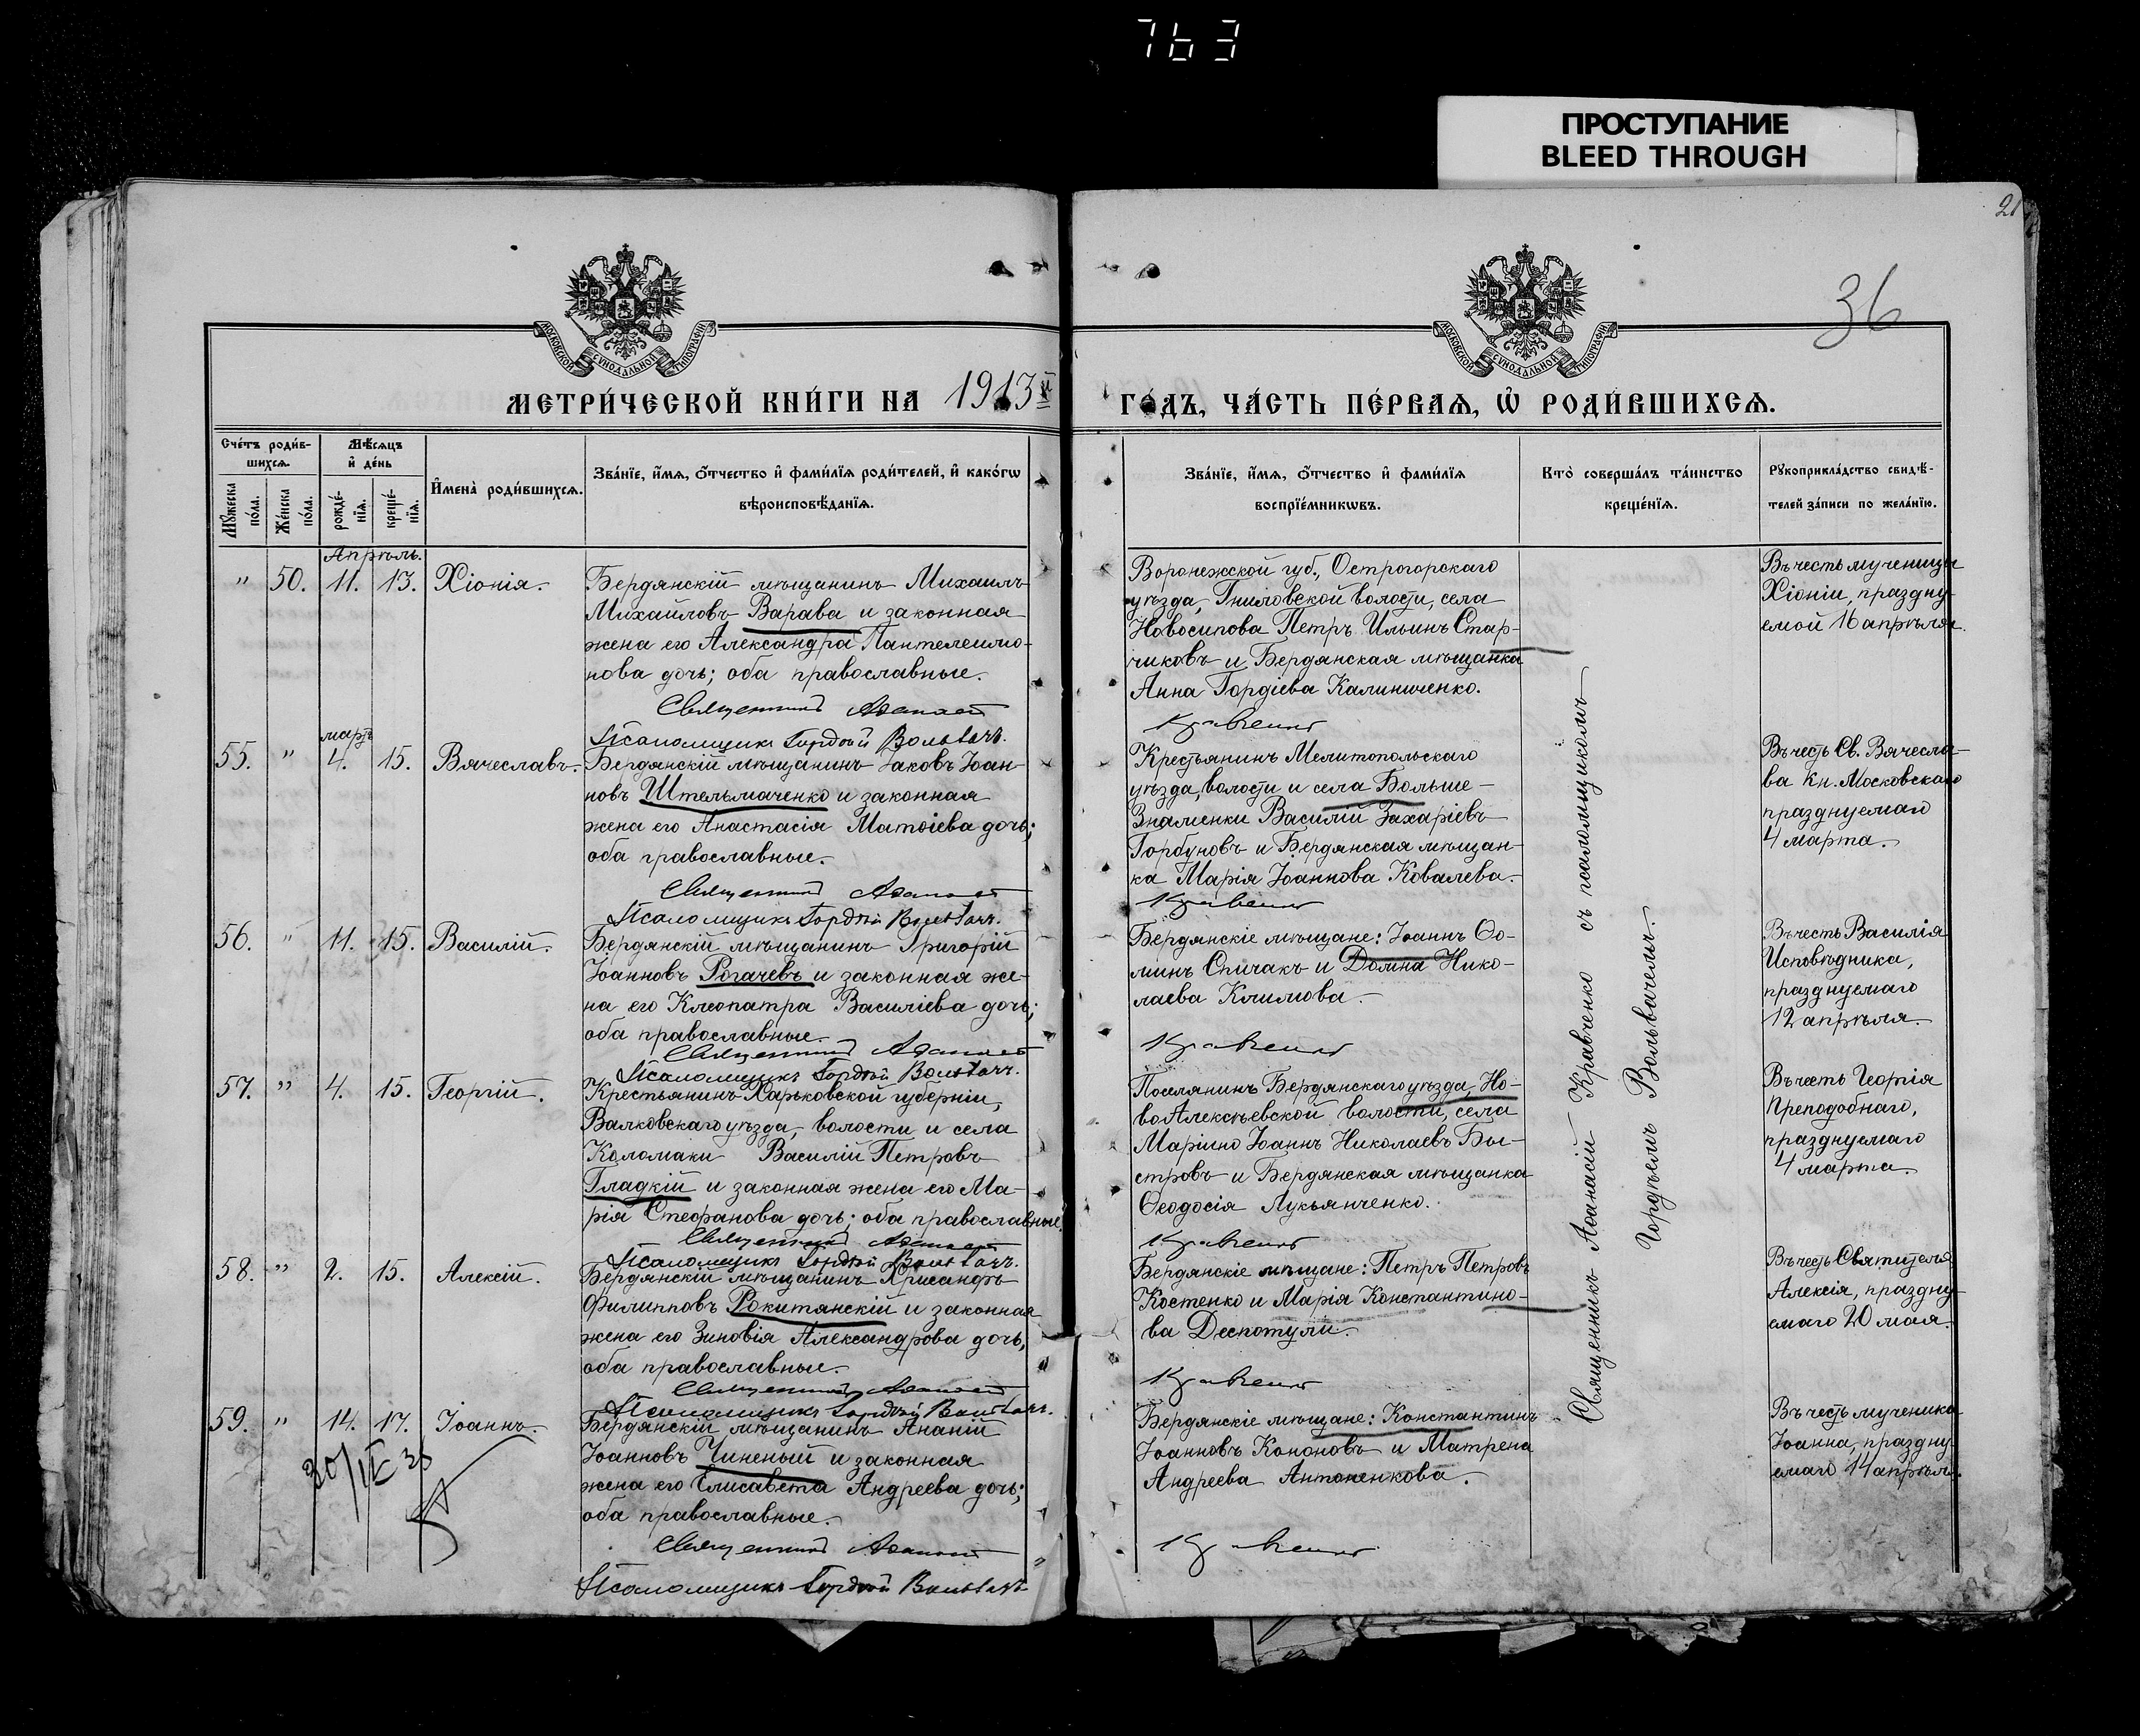 763
ПРОСТУПАНИЕ
BLEED THROUGH
21
36
МОСКОВСКОЙ СѴНОДАЛЬНОЙ ТИПОГРАФІИ
МОСКОВСКОЙ СѴНОДАЛЬНОЙ ТИПОГРАФІИ
МЕТРИ́ЧЕСКОЙ КНИ́ГИ НА 1913й
ГО́ДЪ, ЧА́СТЬ ПЕ́РВАѦ, Ѡ҆ РОДИ́ВШИХСѦ.
Сче́тъ роди́в-
шихсѧ.
Мꙋ́жеска по́ла.
Же́нска по́ла.
Мѣ́сѧцъ
и҆ де́нь
рожде́-
нїѧ.
креще́-
нїѧ.
И҆мена̀ роди́вшихсѧ.
Зва́нїе, и҆́мѧ, ѻ҆́тчество и҆ фами́лїѧ роди́телей, и҆ како́гѡ
вѣроисповѣ́данїѧ.
Зва́нїе, и҆́мѧ, ѻ҆́тчество и҆ фами́лїѧ
воспрїе́мникѡвъ.
Кто̀ соверша́лъ та́инство
креще́нїѧ.
Рꙋкоприкла́дство свидѣ́-
телей за́писи по жела́нїю.
Апрѣль.
" 50. 11. 13. Хіонія.
Бердянскій мѣщанинъ Михаилъ
Михайловъ Варава и законная
жена его Александра Пантелеимо-
нова дочь; оба православные.
Священникъ Аѳанасій
Псаломщикъ Гордѣй Вольвачъ.
Воронежской губ., Острогорскаго
уѣзда, Гниловской волости, села
Новосипова Петръ Ильинъ Стар-
чиковъ и Бердянская мѣщанка
Анна Гордіева Калиниченко.
Кравченко
Въ честь мученицы
Хіоніи, праздну-
емой 16 апрѣля.
мартъ
55. " 4. 15. Вячеславъ.
Бердянскій мѣщанинъ Іаковъ Іоан-
новъ Штельмаченко и законная
жена его Анастасія Матѳіева дочь;
оба православные.
Священникъ Аѳанасій
Псаломщикъ Гордѣй Вольвачъ.
Крестьянинъ Мелитопольскаго
уѣзда, волости и села Больше-
Знаменки Василій Захаріевъ
Горбуновъ и Бердянская мѣщан-
ка Марія Іоаннова Ковалева.
Кравченко
Въ честь Св. Вячесла-
ва Кн. Московскаго
празднуемаго
4 марта.
56. " 11. 15. Василій.
Бердянскій мѣщанинъ Григорій
Іоанновъ Рогачевъ и законная же-
на его Клеопатра Василіева дочь;
оба православные.
Священникъ Аѳанасій
Псаломщикъ Гордѣй Вольвачъ.
Бердянскіе мѣщане: Іоаннъ Ѳо-
минъ Спичакъ и Домна Нико-
лаева Климова.
Кравченко
Въ честь Василія
Исповѣдника,
празднуемаго
12 апрѣля.
57. " 4. 15. Георгій.
Крестьянинъ Харьковской губерніи,
Валковскаго уѣзда, волости и села
Коломаки Василій Петровъ
Гладкій и законная жена его Ма-
рія Стефанова дочь; оба православные.
Священникъ Аѳанасій
Псаломщикъ Гордѣй Вольвачъ.
Поселянинъ Бердянскаго уѣзда, Но-
воАлексѣевской волости, села
Маріино Іоаннъ Николаевъ Бы-
стровъ и Бердянская мѣщанка
Ѳеодосія Лукьянченко.
Кравченко
Въ честь Георгія
Преподобнаго,
празднуемаго
4 марта.
58. " 2. 15. Алексій.
Бердянскій мѣщанинъ Хрисанфъ
Филипповъ Рокитянскій и законная
жена его Зиновія Александрова дочь,
оба православные.
Священникъ Аѳанасій
Псаломщикъ Гордѣй Вольвачъ.
Бердянскіе мѣщане: Петръ Петровъ
Костенко и Марія Константино-
ва Деспотули.
Кравченко
Въ честь Святителя
Алексія, праздну-
емаго 20 мая.
59. " 14. 17. Іоаннъ.
Бердянскій мѣщанинъ Ананій
Іоанновъ Чиненый и законная
жена его Елисавета Андреева дочь;
оба православные.
Священникъ Аѳанасій
Псаломщикъ Гордѣй Вольвачъ
Бердянскіе мѣщане: Константинъ
Іоанновъ Кононовъ и Матрена
Андреева Антоненкова.
Кравченко
Въ честь мученика
Іоанна, праздну-
емаго 14 апрѣля.
Священникъ Аѳанасій Кравченко съ псаломщикомъ
Гордѣемъ Вольвачемъ.